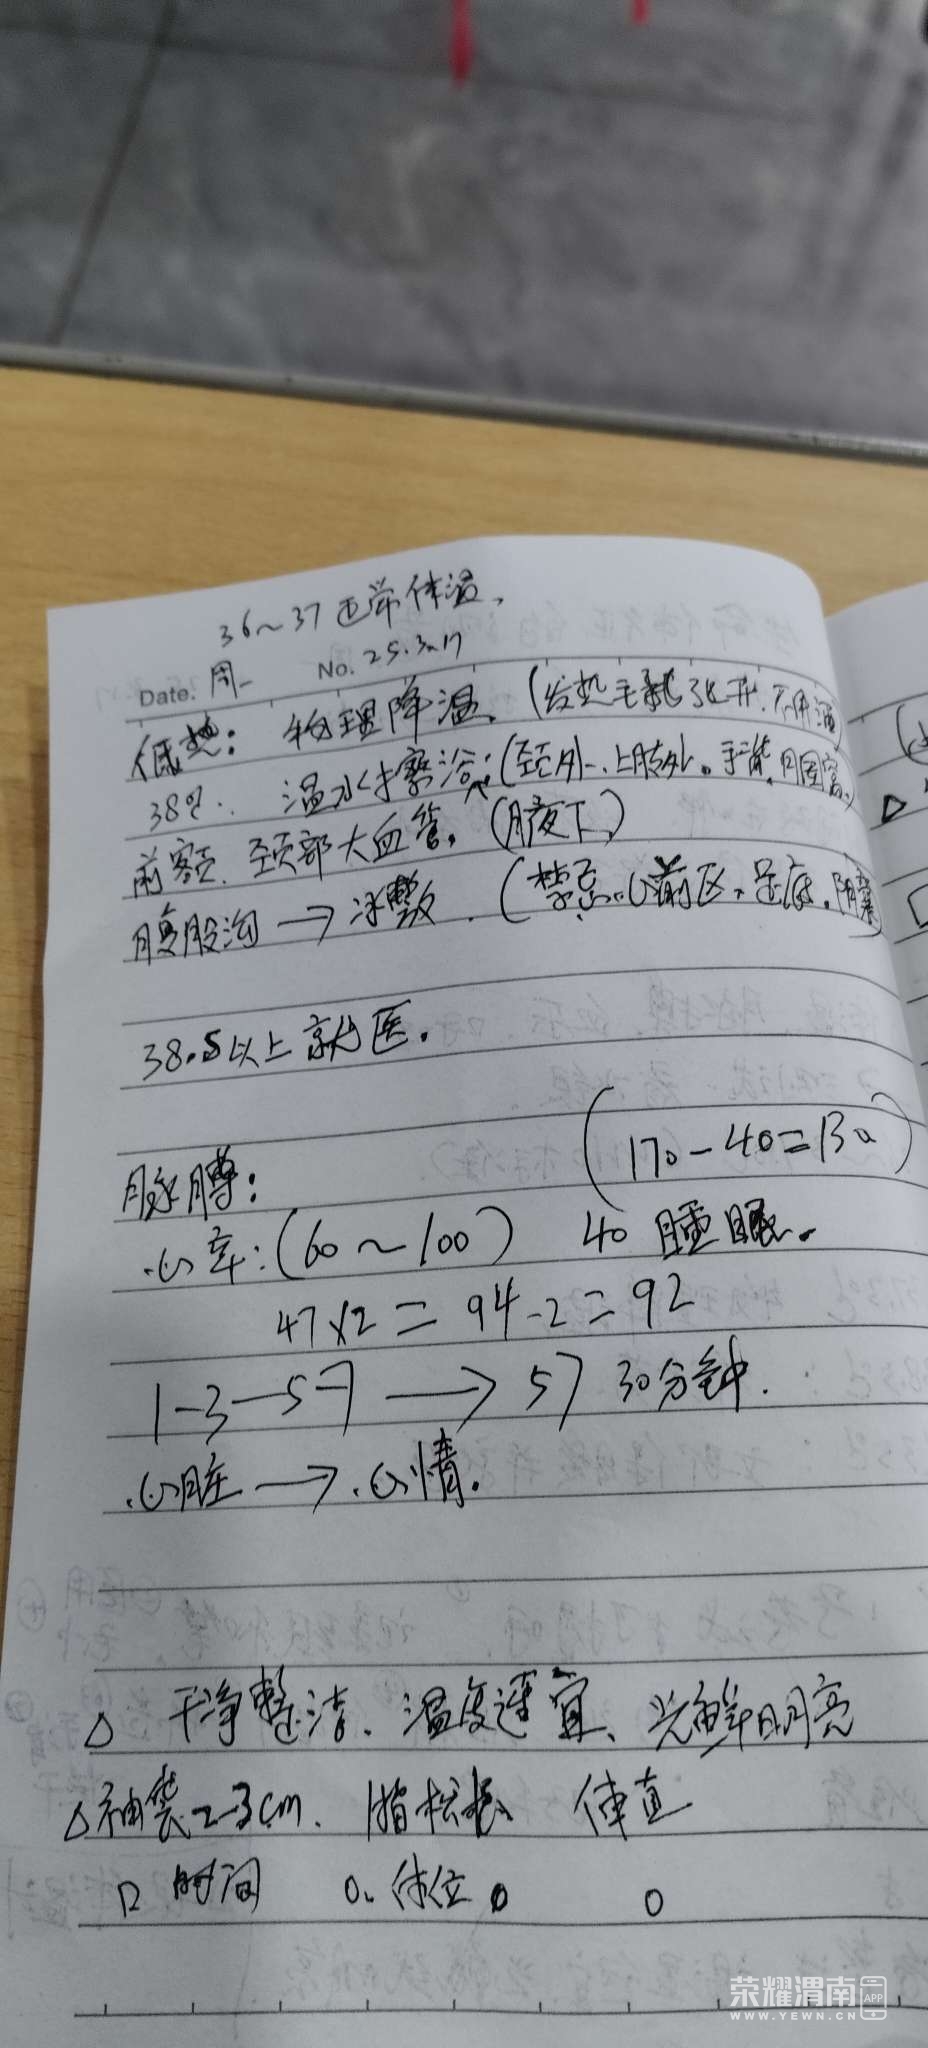 36~37正常体温、
Date. 周一 No. 25.3.17
低热：物理降温、(发热毛孔张开.不用酒
38℃. 温水擦浴：(颈外一、上肢外。手 腘窝.)
前额、颈部大血管, (腋下、)
腹股沟 → 冰敷. (禁忌:心前区、足底.阴囊)
38.5以上就医.
脉搏: (170-40=130)
心率:(60~100) 40 睡眠.
47×2=94-2=92
1-3-5-7 → 57 30分钟.
心脏 → 心情.
△ 干净整洁、温度适宜、光鲜明亮
△袖袋2-3cm. 1指松 伸直
口 时间 0. 体位。 0
荣耀渭南 APP
WWW.YEWN.CN